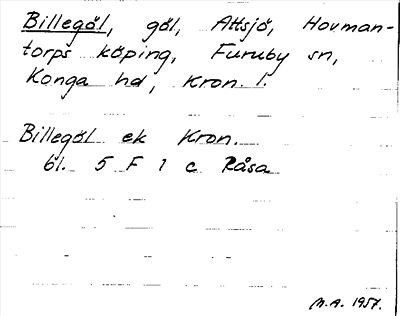 Billegöl, göl, Attsjö, Hovman-
torps köping, Furuby sn,
Konga hd, Kron. l.
Billegöl ek Kron.
bl. 5 F 1 c Råsa
M.A. 1957.